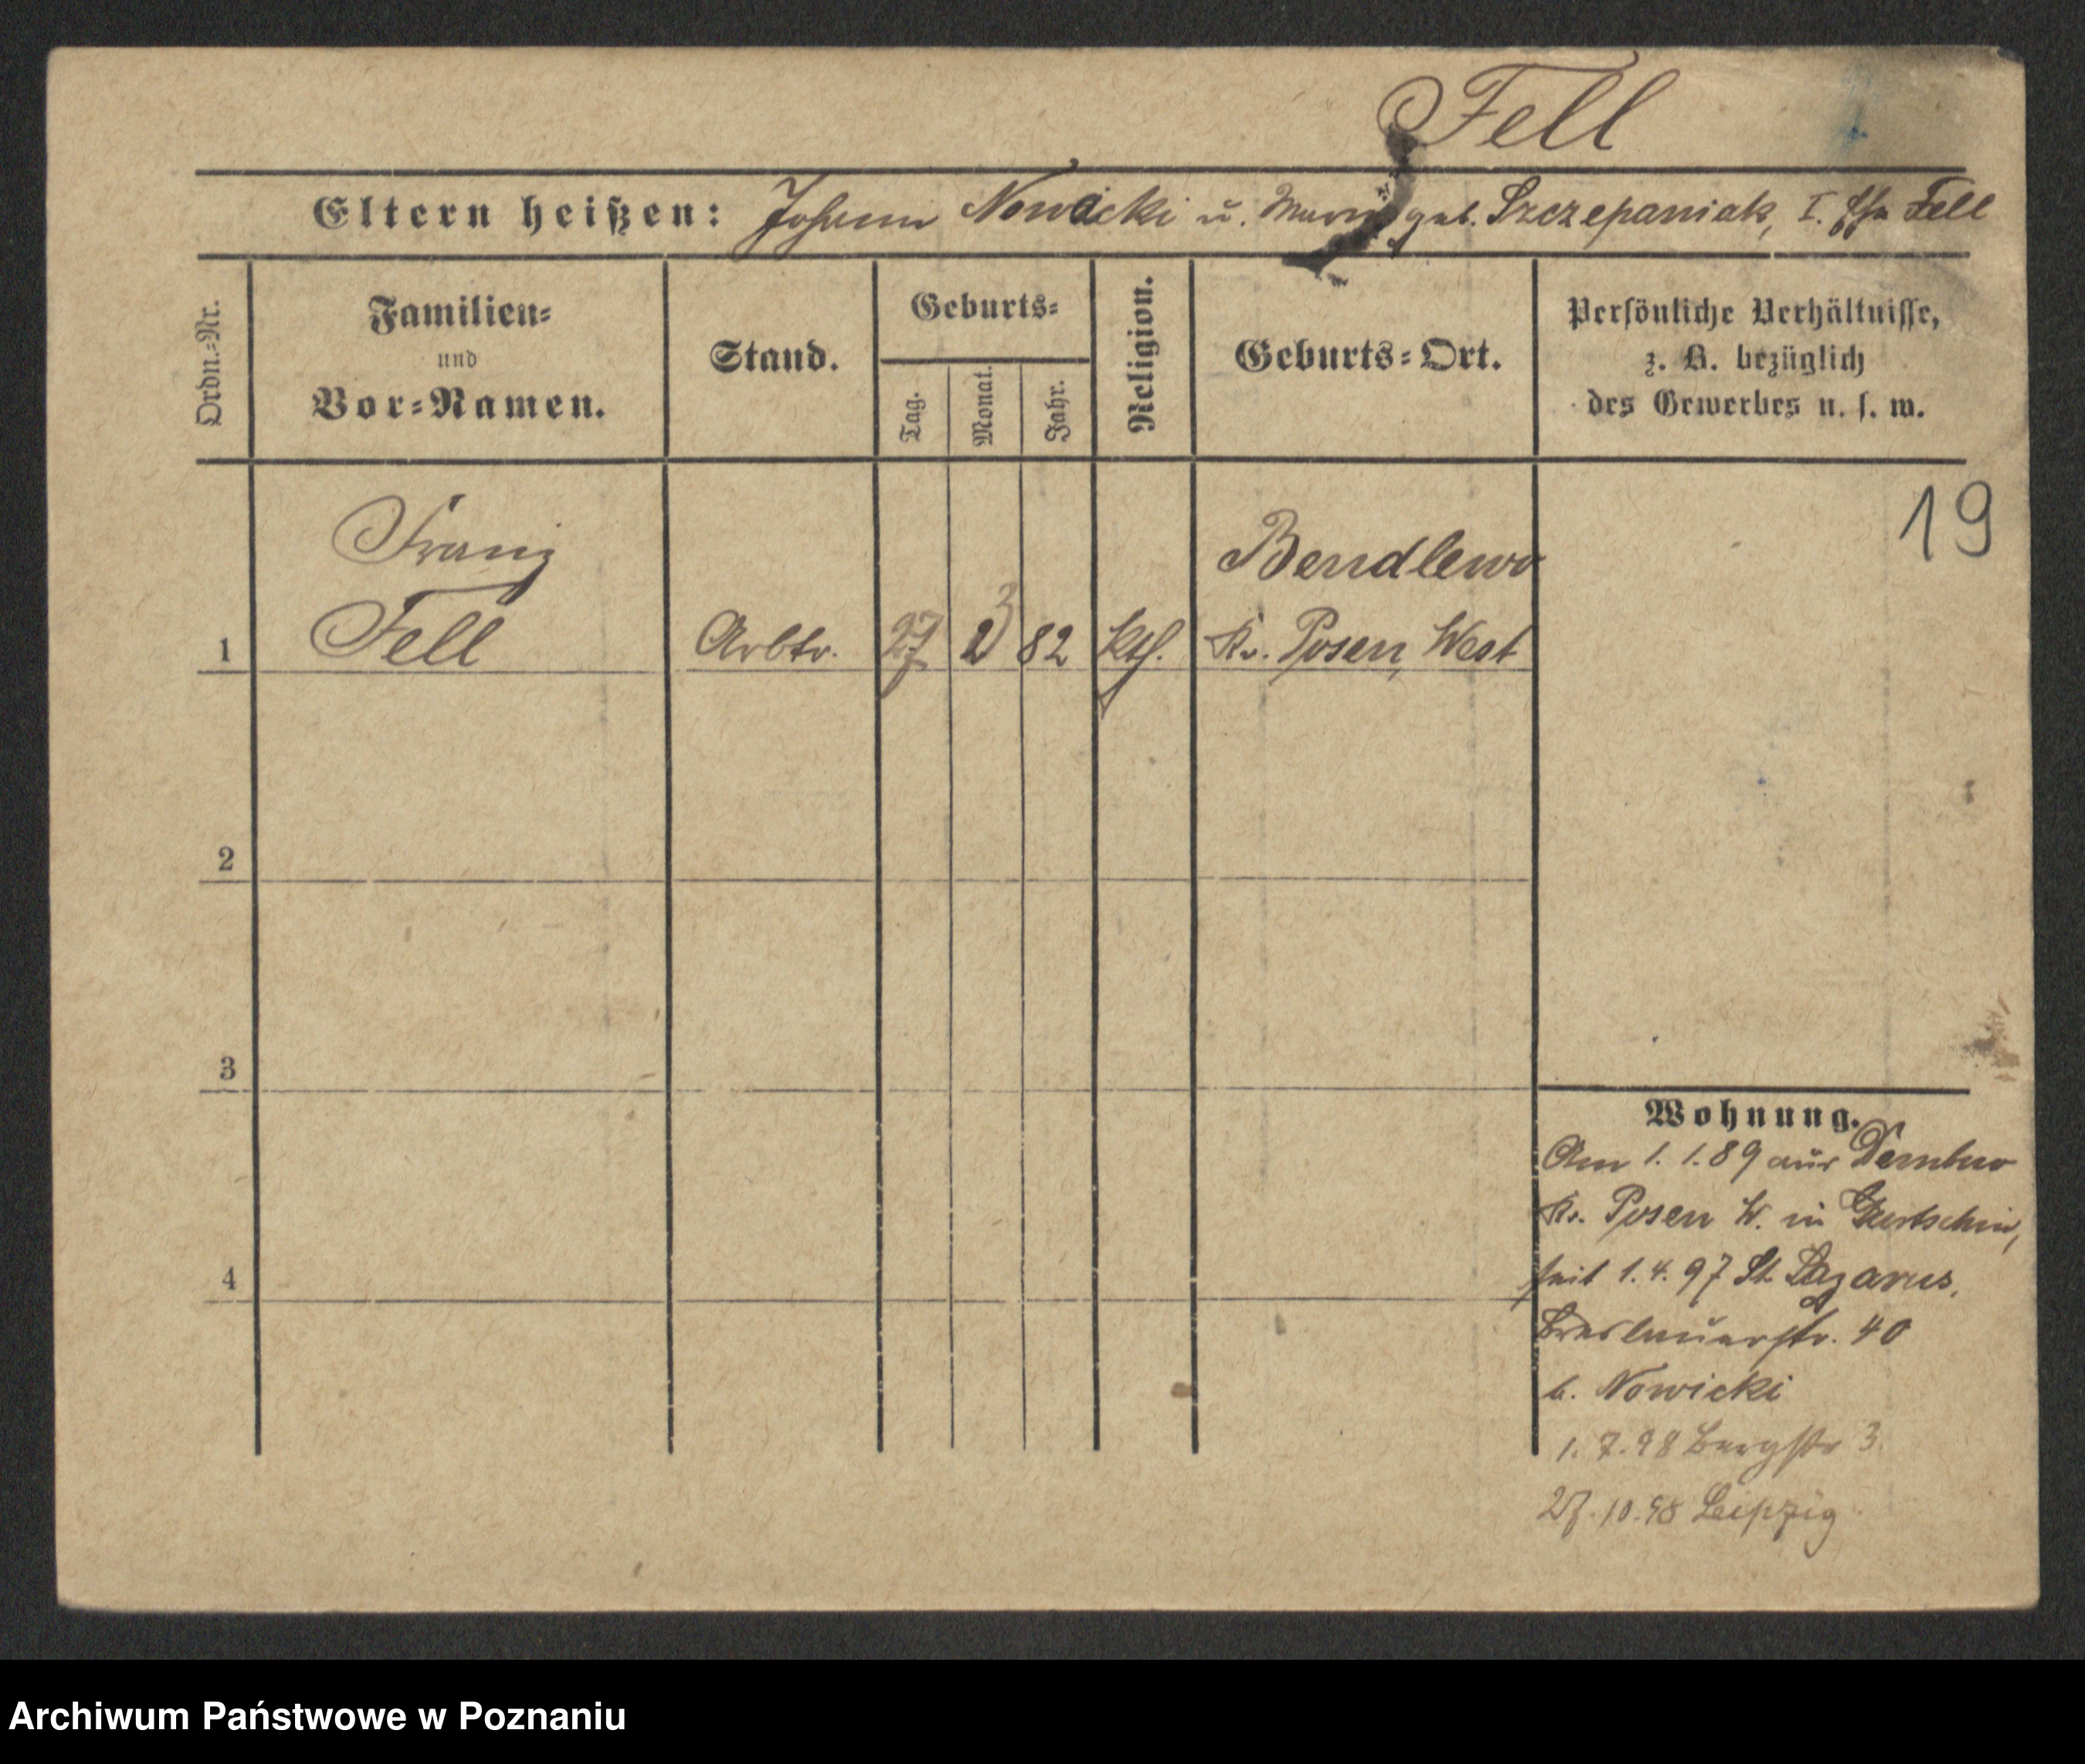 Fell
Eltern heißen: Johann Nowacki u. Marie geb. Szczepaniak, I. Ehe Fell
Ordn.-Nr.
Familien-
und
Vor-Namen.
Stand.
Geburts-
Tag.
Monat.
Jahr.
Religion.
Geburts-Ort.
Persönliche Verhältnisse,
z. B. bezüglich
des Gewerbes u. s. w.
19
Franz
Bendlewo
1 Fell Arbtr. 27 3 82 kth. Kr. Posen West
2
3
4
Wohnung.
Am 1. 1. 89 aus Dembno
Kr. Posen W. in Gurtschin,
seit 1. 4. 97 St. Lazarus,
Breslauerstr. 40
b. Nowicki
1. 7. 98 Bergstr 3
27. 10. 98 Leipzig
Archiwum Państwowe w Poznaniu